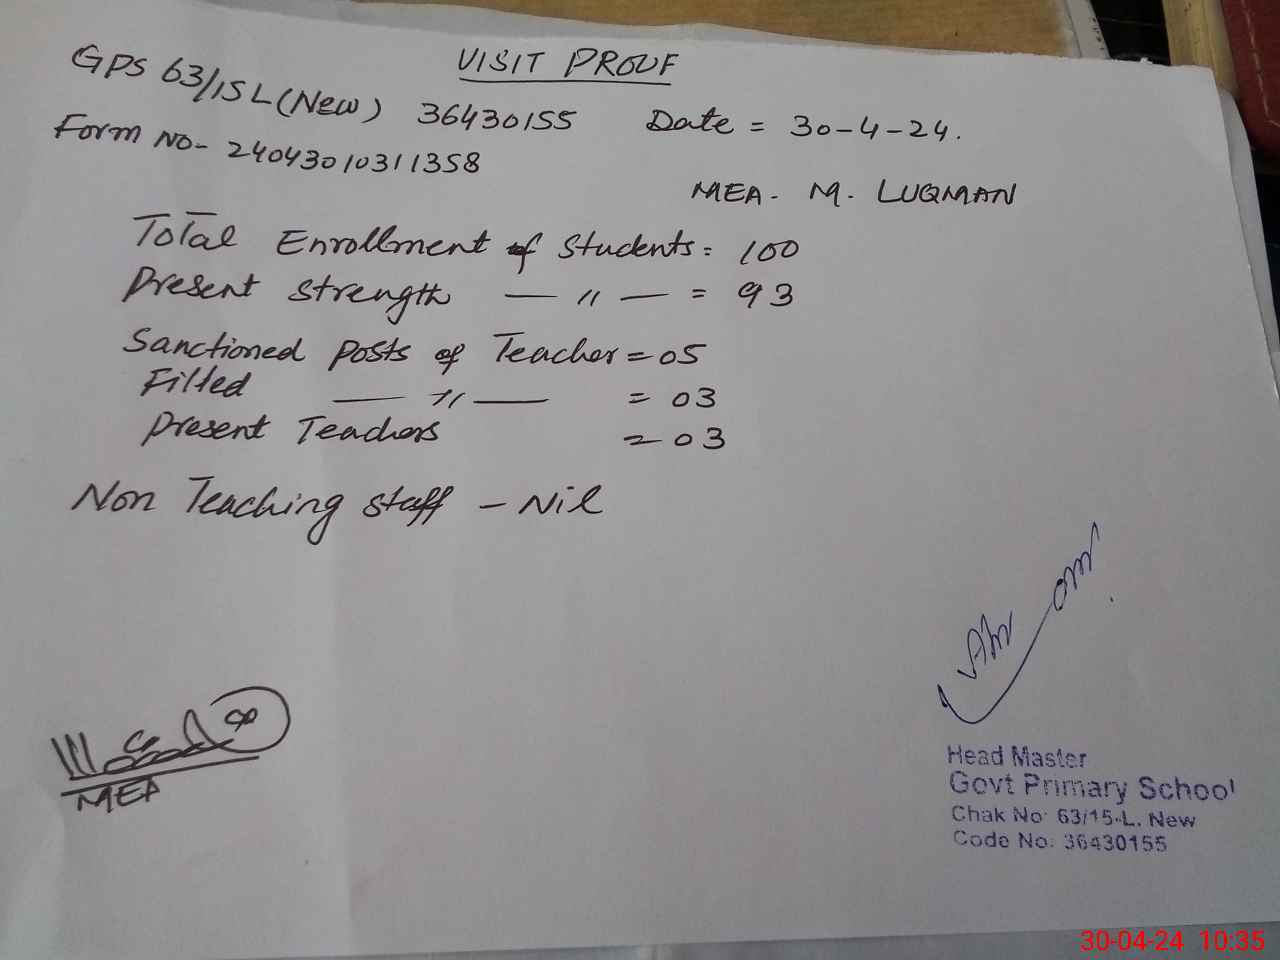 VISIT PROUF
GPS 63/15L(New) 36430155 Date = 30-4-24.
Form No- 24043010311358
MEA- M. LUQMAN
Total Enrollment of Students = 100
Present Strength — 〃 — = 93
Sanctioned Posts of Teacher = 05
Filled — 〃 — = 03
Present Teachers = 03
Non Teaching Staff - Nil
MEA
Head Master
Govt Primary School
Chak No: 63/15-L. New
Code No: 36430155
30-04-24 10:35